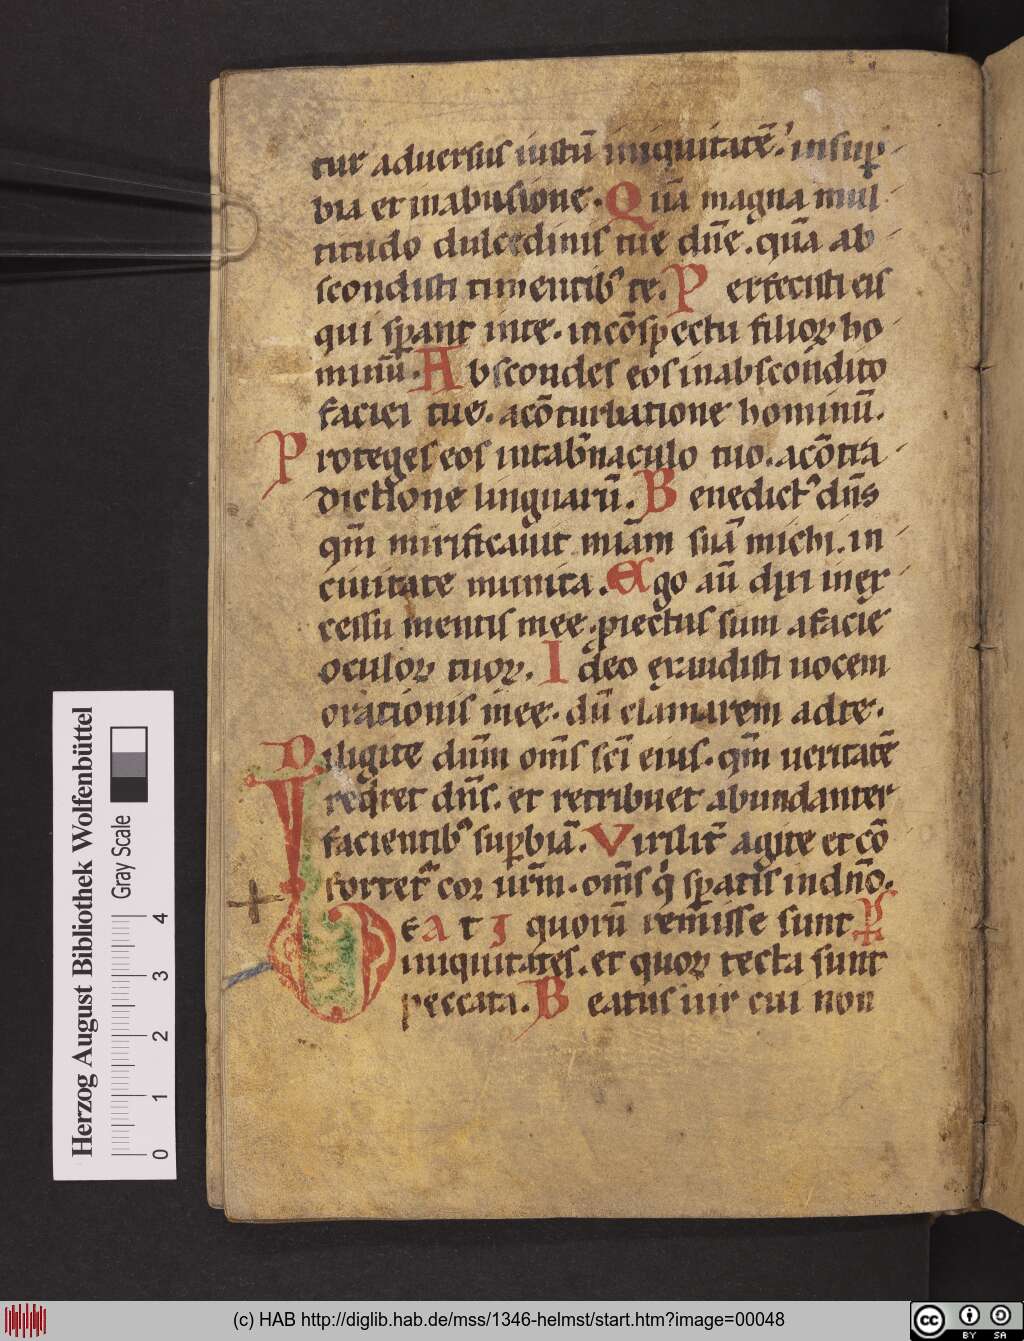 tur aduersus iustū iniquitatē. insup̄
bia et in abusione. Quā magna mul
titudo dulcedinis tue dn̄e. quā ab
scondisti timentib; te. Perfecisti eis
qui sperant inte. incōspectu filioꝝ ho
minū. Abscondes eos inabscondito
faciei tue. acōturbatione hominū.
Proteges eos intab̄naculo tuo. acōtra
dictione linguarū. Benedict᷒ dn̄s
qm̄ mirificauit miām suā michi. in
ciuitate munita. Ego aū dixi inex
cessu mentis mee. ꝓiectus sum afacie
oculoꝝ tuoꝝ. Ideo exaudisti uocem
orationis mee. dū clamarem adte.
Diligite dūm om̄s sc̄i eius. qm̄ ueritatē
reqret dn̄s. et retribuet abundanter
facientib᷒ suꝑbiā. Virilit̄ agite et cō
fortet᷑ cor ur̄m. om̄s qͥ speratis indn̄o.
BEATI quorū remisse sunt Ps
iniquitates. et quoꝝ tecta sunt
peccata. Beatus uir cui non
Herzog August Bibliothek Wolfenbüttel
Gray Scale
0 1 2 3 4
(c) HAB http://diglib.hab.de/mss/1346-helmst/start.htm?image=00048
cc BY SA